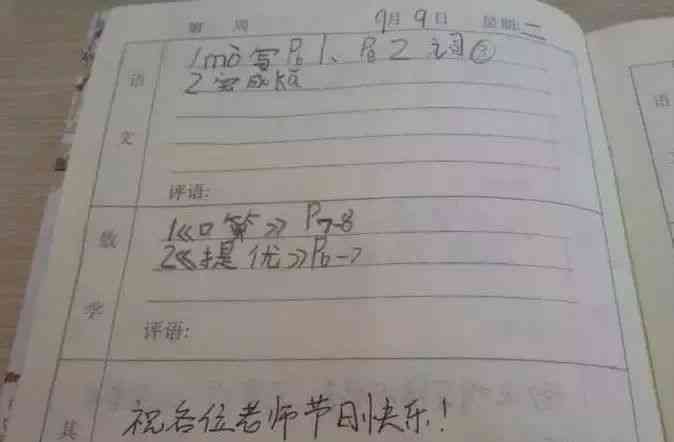 第 周 9月9日 星期:一
语文
1mò写P61、P62 词②
2完成kǎ
评语:
数学
1《口算》P7-8
2《提优》P6-7
评语:
其
祝各位老师节日快乐!
语